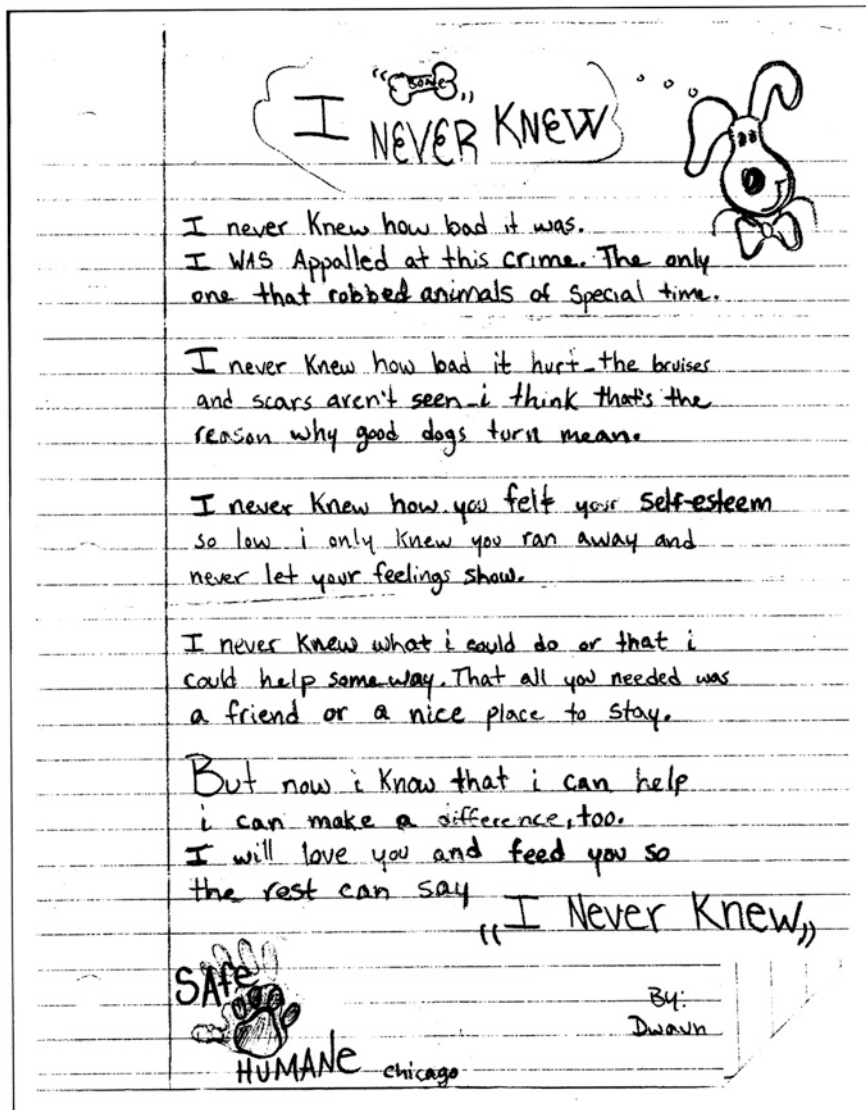 "BONE"
I NEVER KNEW
I never Knew how bad it was.
I WAS Appalled at this crime. The only
one that robbed animals of special time.
I never Knew how bad it hurt-the bruises
and scars aren't seen-i think that's the
reason why good dogs turn mean.
I never Knew how you felt your self-esteem
so low i only knew you ran away and
never let your feelings show.
I never Knew what i could do or that i
could help some way. That all you needed was
a friend or a nice place to stay.
But now i know that i can help
i can make a difference, too.
I will love you and feed you so
the rest can say
"I Never Knew"
SAfe
HUMANe chicago
By:
Dwavn